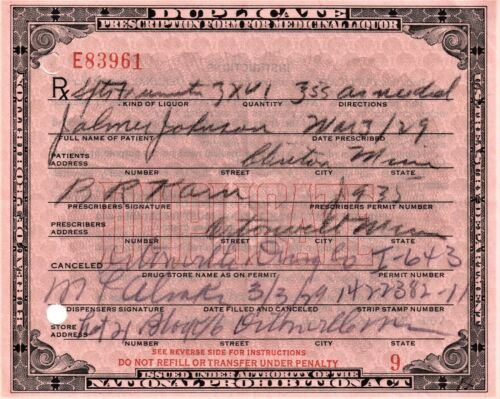 DUPLICATE
PRESCRIPTION FORM FOR MEDICINAL LIQUOR
E83961
Rx Spts Frumenti ʒXVI ʒss as needed
KIND OF LIQUOR QUANTITY DIRECTIONS
Johnson Mar 3/29
FULL NAME OF PATIENT DATE PRESCRIBED
PATIENTS ADDRESS Clinton Minn
NUMBER STREET CITY STATE
B R Karn 1935
PRESCRIBERS SIGNATURE PRESCRIBERS PERMIT NUMBER
PRESCRIBERS ADDRESS Ortonville Minn
NUMBER STREET CITY STATE
CANCELED Ortonville Drug Co I-643
DRUG STORE NAME AS ON PERMIT PERMIT NUMBER
3/3/29 1422382-11
DISPENSERS SIGNATURE DATE FILLED AND CANCELED STRIP STAMP NUMBER
STORE ADDRESS Lot 21 Blog 16 Ortonville Minn
NUMBER STREET CITY STATE
SEE REVERSE SIDE FOR INSTRUCTIONS
DO NOT REFILL OR TRANSFER UNDER PENALTY 9
ISSUED UNDER AUTHORITY OF THE
NATIONAL PROHIBITION ACT
BUREAU OF PROHIBITION
DUPLICATE